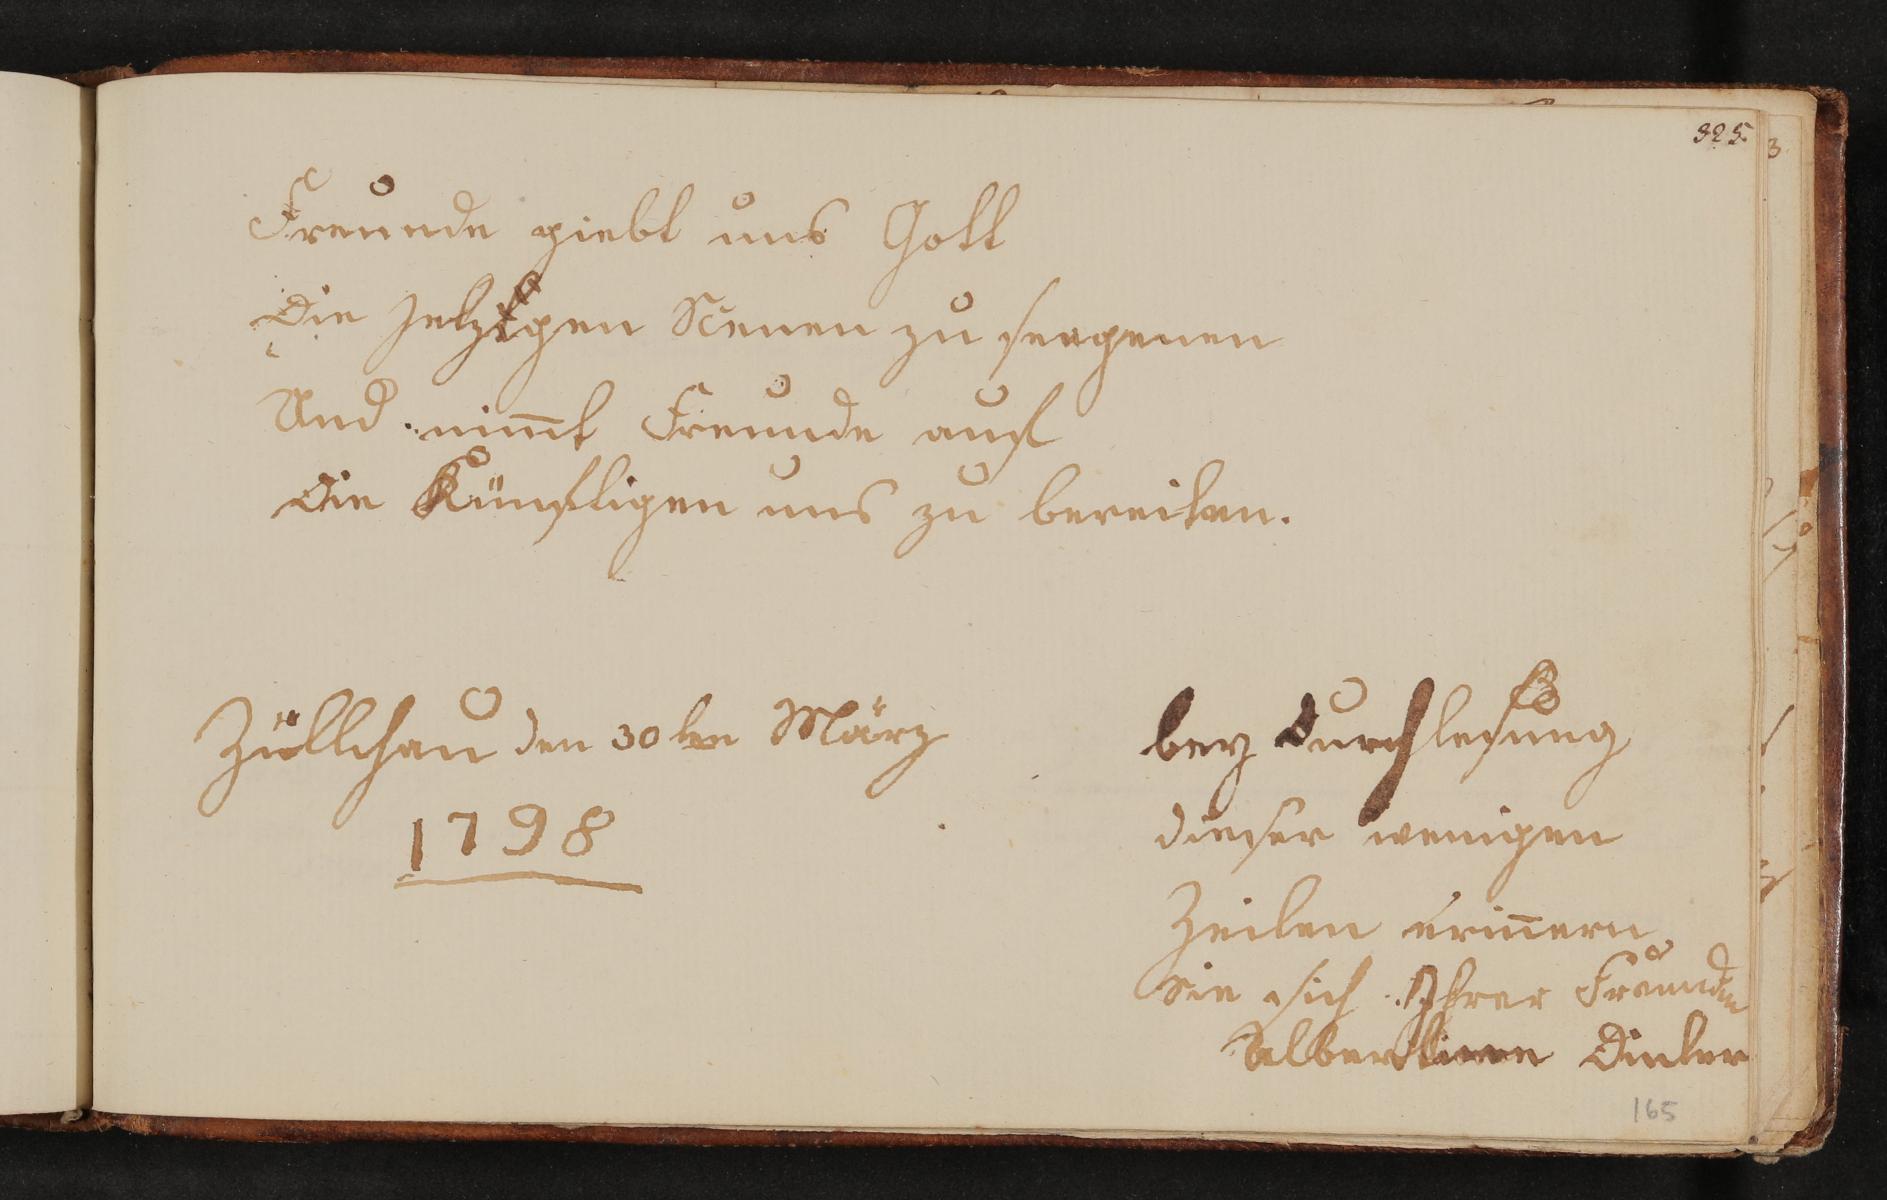 325.
Freunde giebt uns Gott
Die jetzigen Scenen zu seegenen
Und nim̄t Freunde auf
Die Künftigen uns zu bereiten.
Züllchau den 30ten März
1798
bey Durchlesung
dieser wenigen
Zeilen erin̄ern
Sie sich Ihrer Freundin
Albertine
165